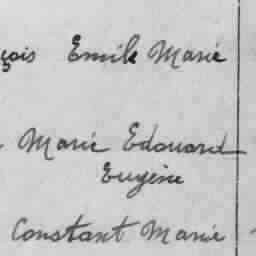 çois Emile Marie
Marie Edouard
Eugène
Constant Marie